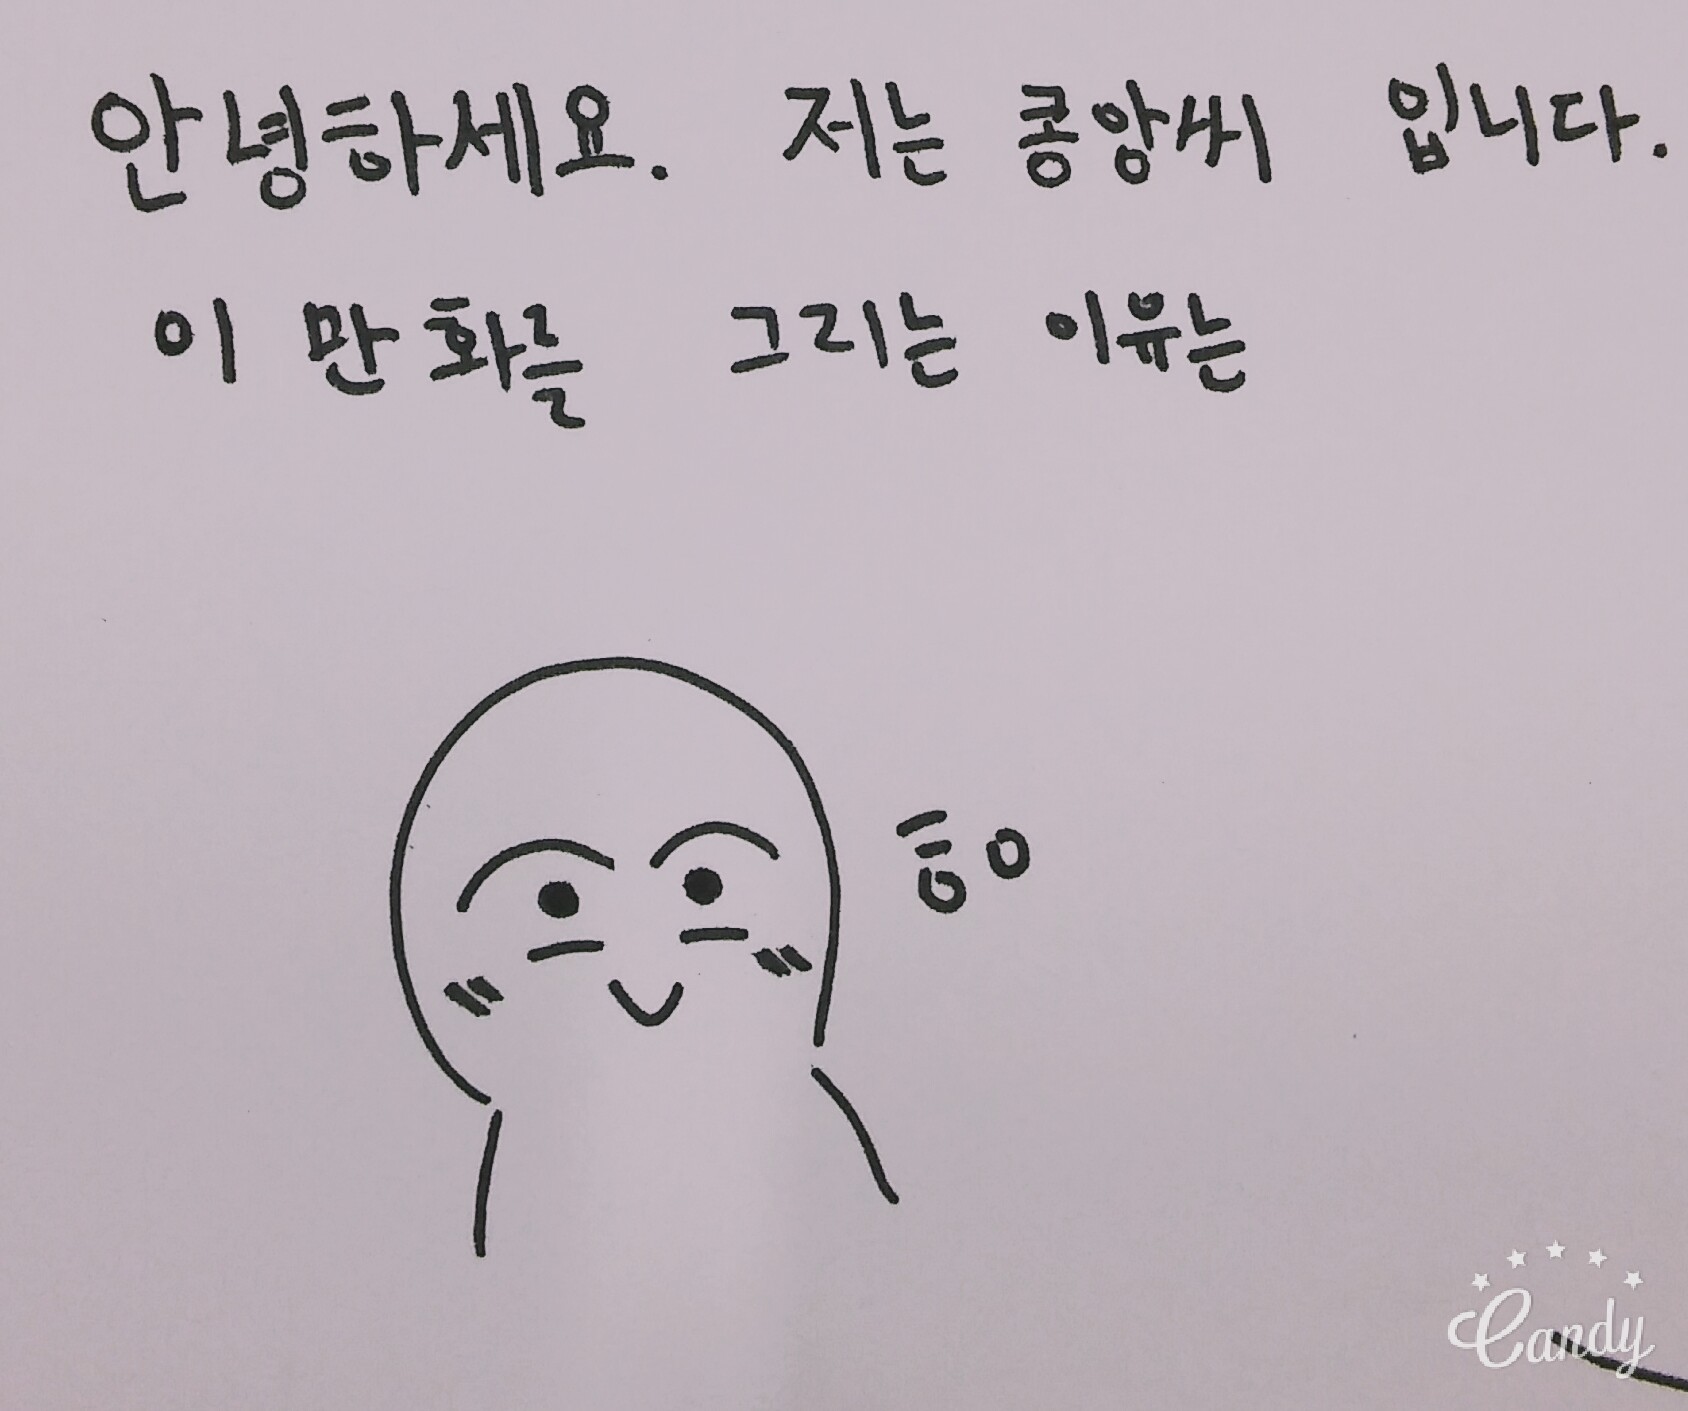 안녕하세요. 저는 콩앙씨 입니다.
이 만화를 그리는 이유는
Candy